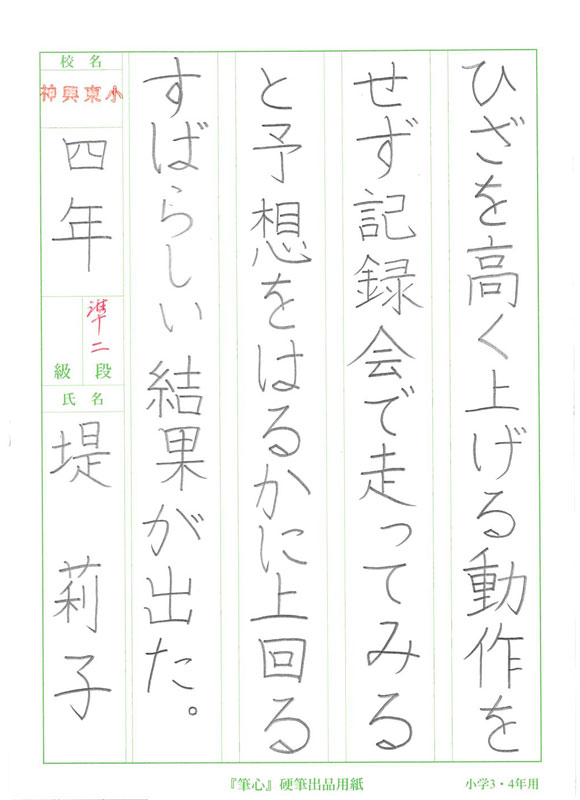 ひざを高く上げる動作を
せず記録会で走ってみる
と予想をはるかに上回る
すばらしい結果が出た。
校名
神興東小
四年
準二
段
級
氏名
堤 莉子
『筆心』硬筆出品用紙
小学3・4年用